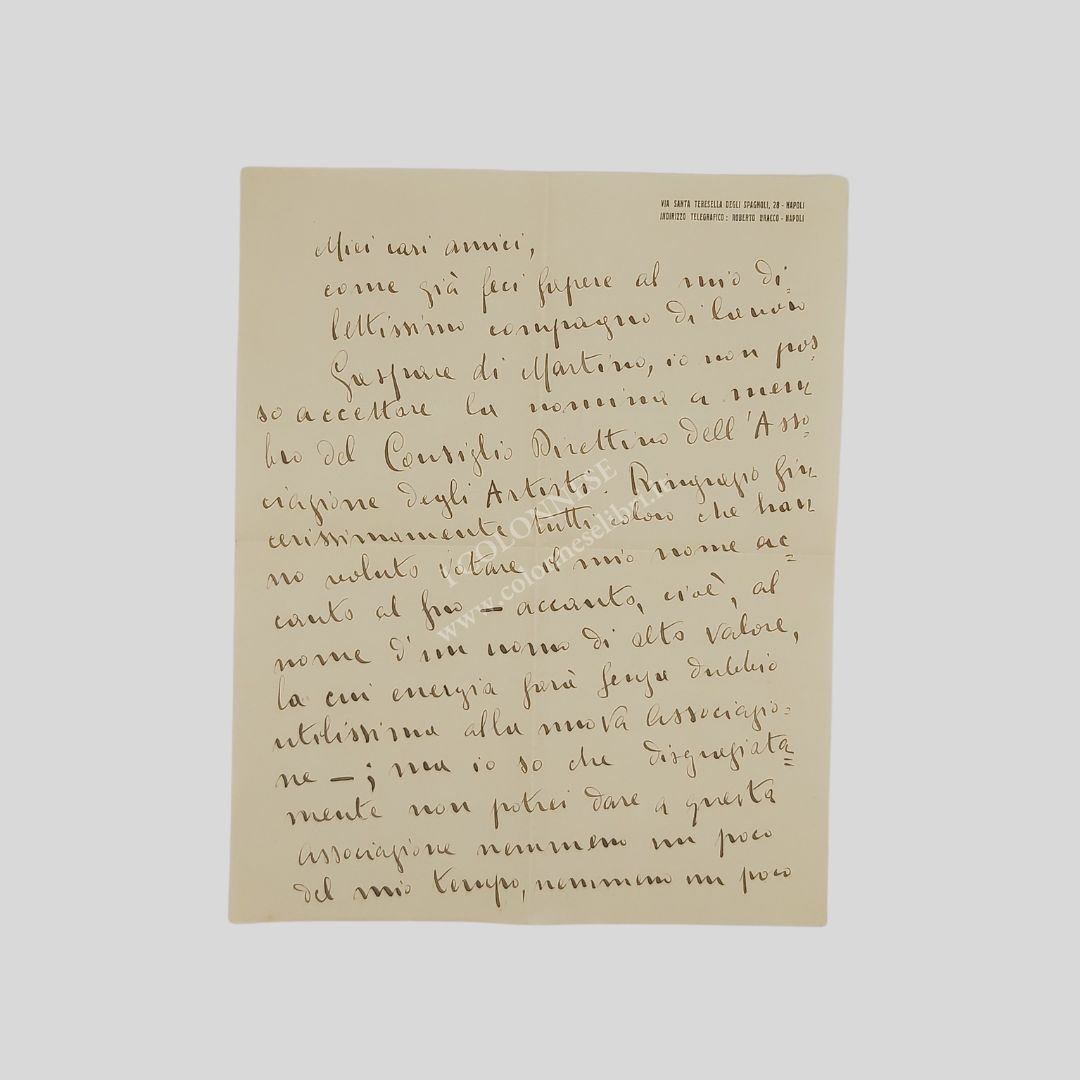 VIA SANTA TERESELLA DEGLI SPAGNOLI, 28 - NAPOLI
INDIRIZZO TELEGRAFICO: ROBERTO BRACCO - NAPOLI
Miei cari amici,
come già feci sapere al mio di=
lettissimo compagno di lavoro
Gaspare di Martino, io non pos=
so accettare la nomina a mem=
bro del Consiglio Direttivo dell'Asso=
ciazione degli Artisti. Ringrazio sin=
cerissimamente tutti coloro che han=
no voluto votare il mio nome ac=
canto al suo — accanto, cioè, al
nome d'un uomo di alto valore,
la cui energia sarà senza dubbio
utilissima alla nuova associazio=
ne —; ma io so che disgraziata=
mente non potrei dare a questa
associazione nemmeno un poco
del mio tempo, nemmeno un poco
I COLONNESE
www.colonneselibri.it